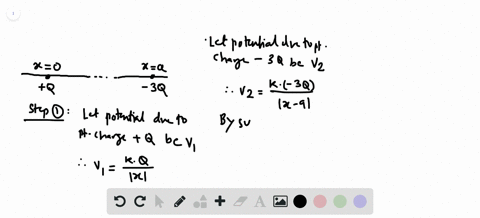 x=0 x=a
+Q .... -3Q
Step ①: Let potential due to
pt. charge +Q be V₁
∴ V₁ = K.Q / |x|
·Let potential due to pt.
charge -3Q be V₂
∴ V₂ = K.(-3Q) / |x-a|
By su